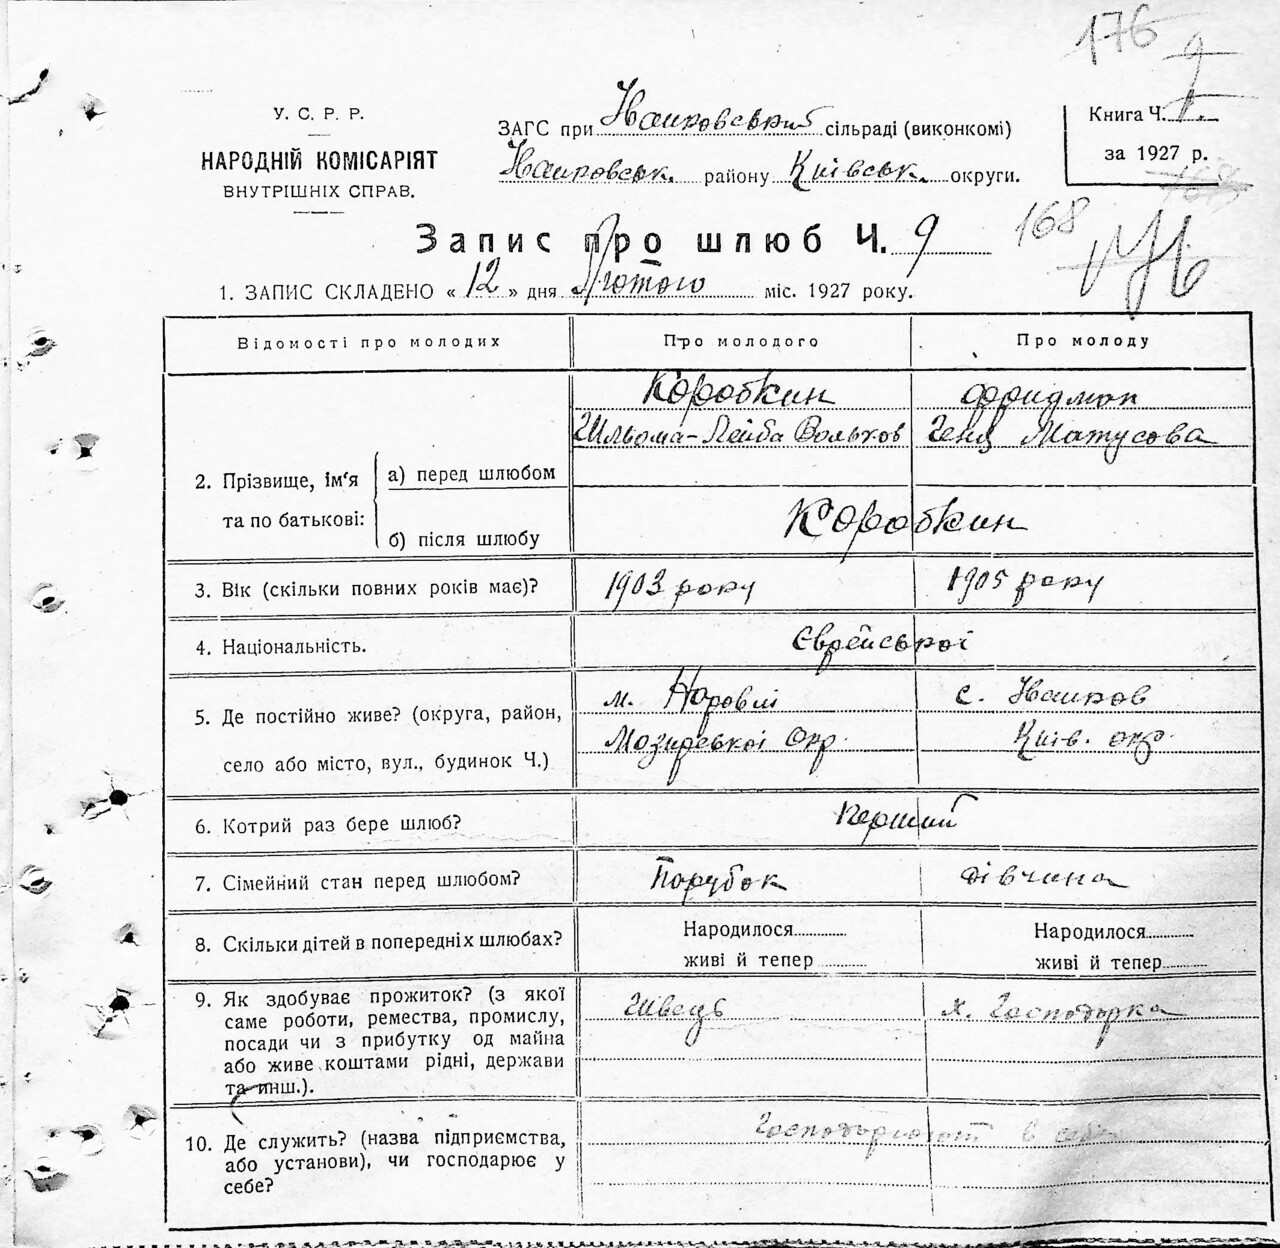 176
9
У. С. Р. Р.
НАРОДНІЙ КОМІСАРІЯТ
ВНУТРІШНІХ СПРАВ.
ЗАГС при Иванковський сільраді (виконкомі)
Иванковськ. району Київськ. округи.
Книга Ч. 1.
за 1927 р.
168
168
176
Запис про шлюб Ч. 9
1. ЗАПИС СКЛАДЕНО « 12 » дня Лютого міс. 1927 року.
Відомості про молодих
Про молодого
Про молоду
2. Прізвище, ім'я та по батькові:
а) перед шлюбом
Коробкин
Шльома-Лейба Вольков
Фридман
Геня Матусова
б) після шлюбу
Коробкин
3. Вік (скільки повних років має)?
1903 року
1905 року
4. Національність.
Єврейської
5. Де постійно живе? (округа, район,
село або місто, вул., будинок Ч.)
м. Наровлі
Мозирської окр.
с. Иванков
Київ. окр.
6. Котрий раз бере шлюб?
Перший
7. Сімейний стан перед шлюбом?
Парубок
дівчина
8. Скільки дітей в попередніх шлюбах?
Народилося
живі й тепер
Народилося
живі й тепер
9. Як здобуває прожиток? (з якої
саме роботи, ремества, промислу,
посади чи з прибутку од майна
або живе коштами рідні, держави
та инш.).
Швець
х. Господарка
10. Де служить? (назва підприємства,
або установи), чи господарює у
себе?
Господарюют в себе